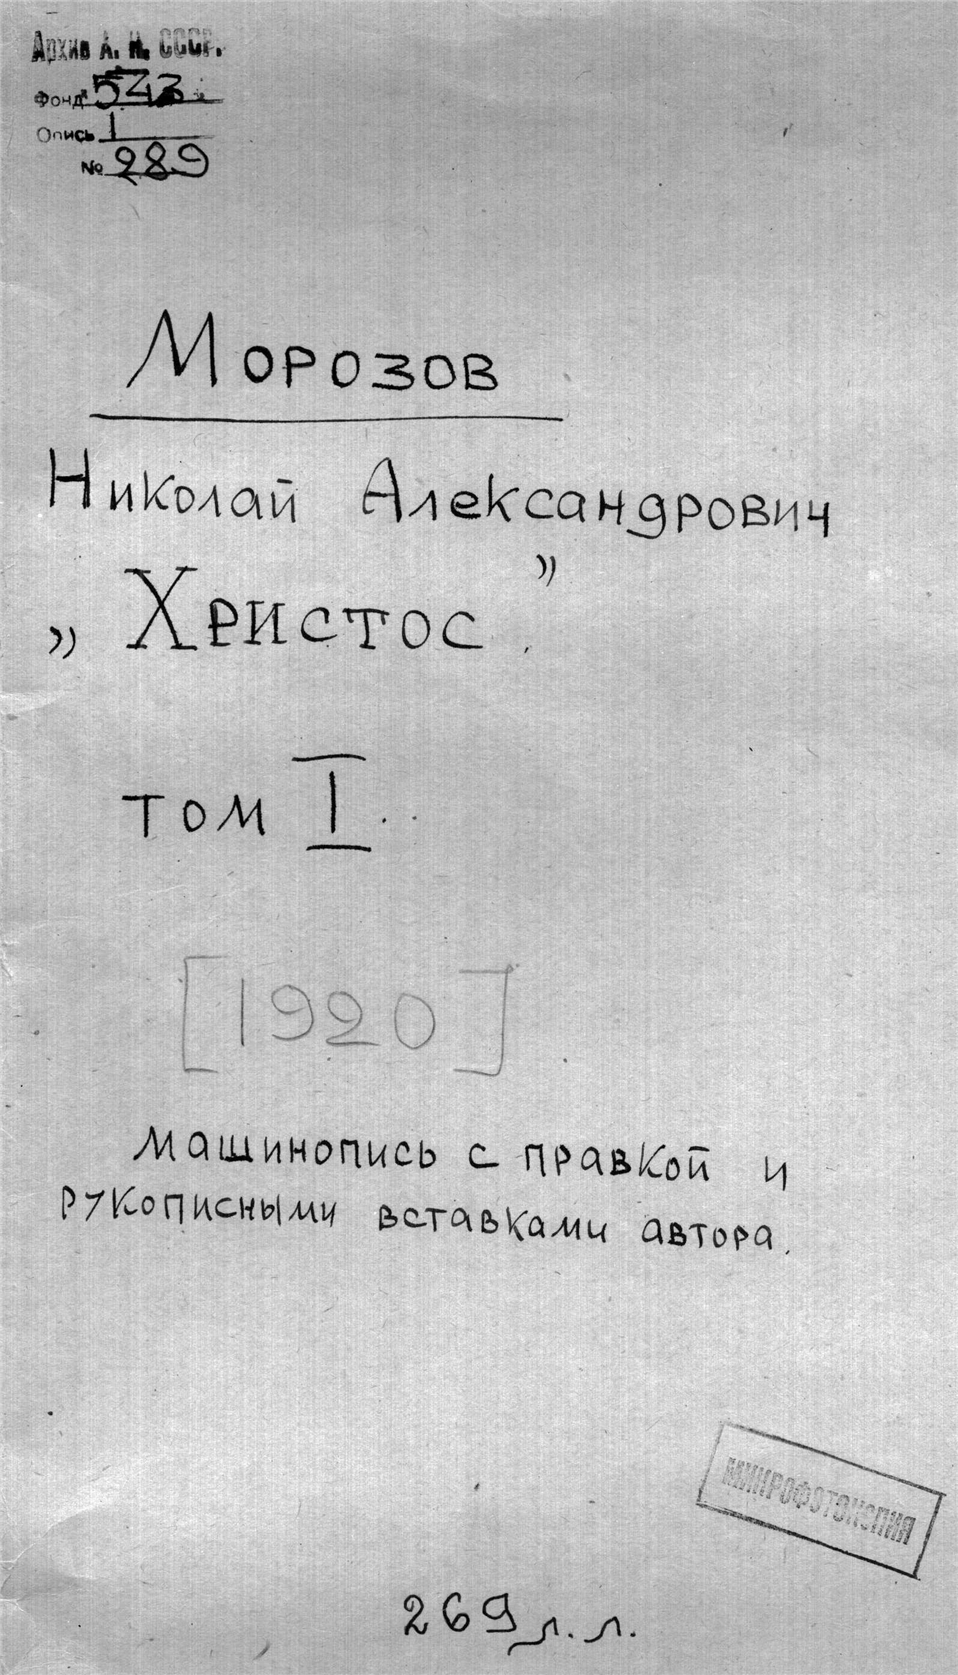 Архив А. Н. СССР.
Фонд 543
Опись 1
№ 289
Морозов
Николай Александрович
„Христос”.
том I.
[1920]
машинопись с правкой и
рукописными вставками автора.
МИКРОФОТОКОПИЯ
269 л. л.